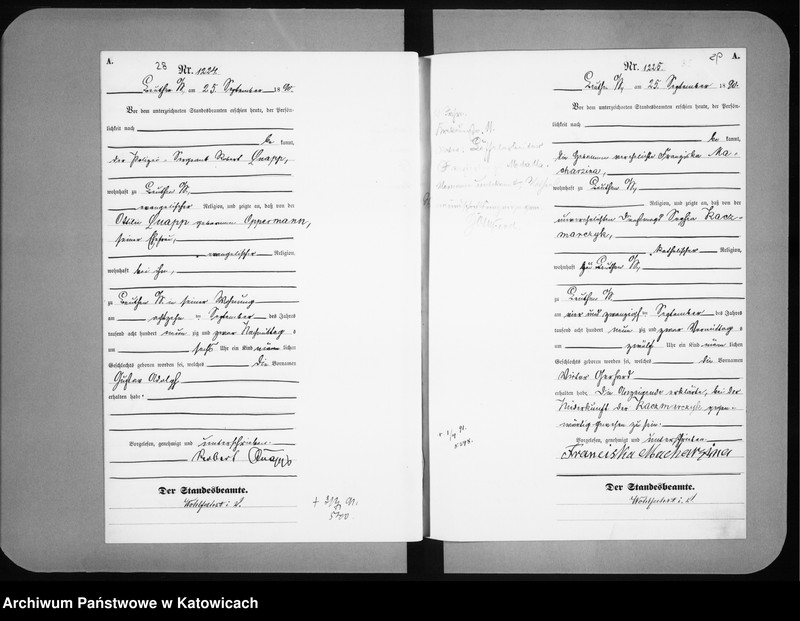 A.
28
Nr. 1224.
Beuthen O/S am 25. September 1890.
Vor dem unterzeichneten Standesbeamten erschien heute, der Persön-
lichkeit nach
be kannt,
der Polizei-Sergeant Robert Quapp,
wohnhaft zu Beuthen O/S,
evangelischer Religion, und zeigte an, daß von der
Ottilie Quapp geborenen Oppermann,
seiner Ehefrau,
evangelischer Religion,
wohnhaft bei ihm,
zu Beuthen O/S in seiner Wohnung
am achtzehn ten September des Jahres
tausend acht hundert neun zig und zwar Nachmittag s
um sechs Uhr ein Kind männ lichen
Geschlechts geboren worden sei, welches die Vornamen
Gustav Adolf
erhalten habe.
Vorgelesen, genehmigt und unterschrieben
Robert Quapp
Der Standesbeamte.
A.
Nr. 1225.
Beuthen O/S, am 25. September 1890.
Vor dem unterzeichneten Standesbeamten erschien heute, der Persön-
lichkeit nach
be kannt,
die Hebamme verehelichte Franziska Ma-
charzina,
wohnhaft zu Beuthen O/S,
Religion, und zeigte an, daß von der
unverehelichten Dienstmagd Sophie Kacz-
marczyk,
katholischer Religion,
wohnhaft zu Beuthen O/S,
zu Beuthen O/S
am vier und zwanzigsten September des Jahres
tausend acht hundert neun zig und zwar Vormittag s
um zwölf Uhr ein Kind männ lichen
Geschlechts geboren worden sei, welches die Vornamen
Victor Gerhard
erhalten habe. Die Anzeigende erklärte, bei der
Niederkunft der Kaczmarczyk gegen-
wärtig gewesen zu sein.
Vorgelesen, genehmigt und unterschrieben
Franciska Macharzina
Der Standesbeamte.
Archiwum Państwowe w Katowicach